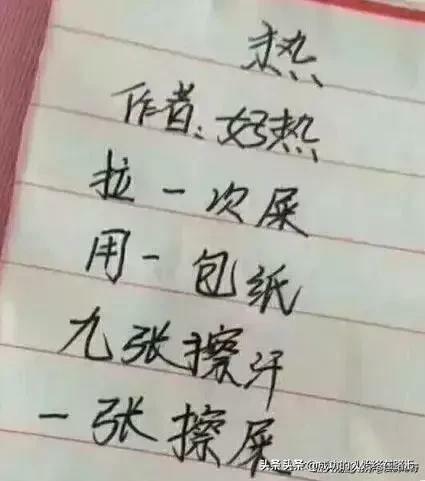 热
作者:好热
拉一次屎
用一包纸
九张擦汗
一张擦屎
头条